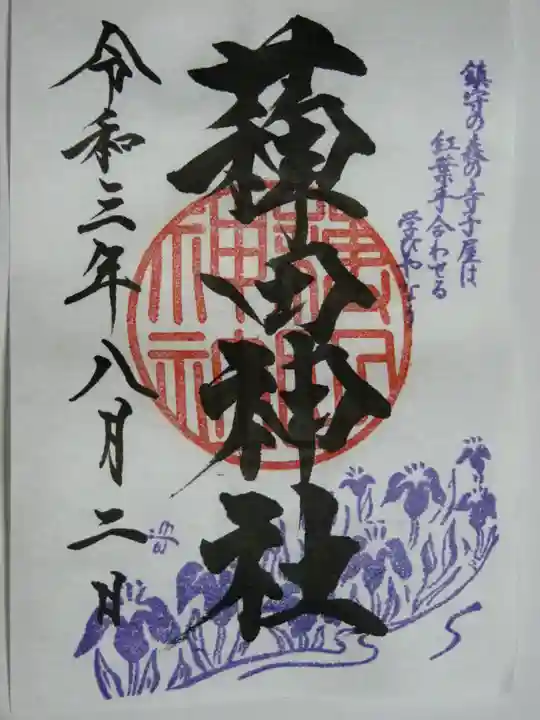 鎮守の森の寺子屋は
紅葉手合わせる
学びやなり
薭田神社
薭田
神社
令和三年八月二日